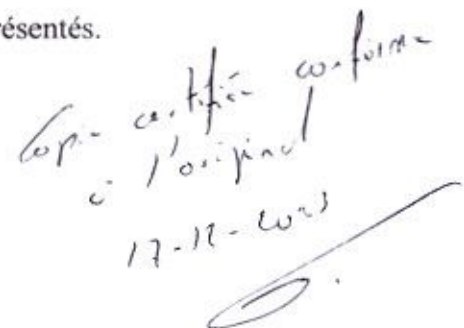 résentés.
Copie certifiée conforme
à l'original
17-12-2023